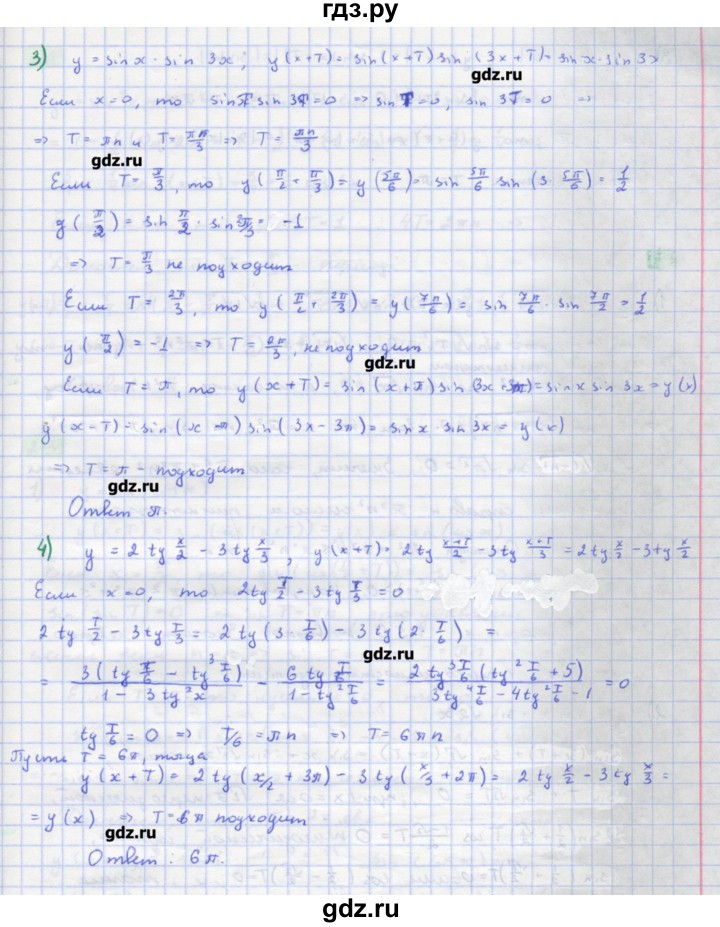 гдз.ру
3) y = sin x · sin 3x ; y(x+T) = sin(x+T) sin (3x+T) = sin x · sin 3x
гдз.ру
Если x=0, то sin T sin 3T = 0 ⇒ sin T = 0, sin 3T = 0 ⇒
⇒ T = πn и T = πn/3 ⇒ T = πn/3
гдз.ру
Если T = π/3, то y(π/2 + π/3) = y(5π/6) = sin 5π/6 sin (3 · 5π/6) = 1/2
y(π/2) = sin π/2 · sin 3π/3 = -1
⇒ T = π/3 не подходит
Если T = 2π/3, то y(π/2 + 2π/3) = y(7π/6) = sin 7π/6 · sin 7π/2 = 1/2
y(π/2) = -1 ⇒ T = 2π/3, не подходит
гдз.ру
Если T = π, то y(x+T) = sin(x+π) sin(3x+3π) = sin x sin 3x = y(x)
y(x-T) = sin(x-π) sin(3x-3π) = sin x · sin 3x = y(x)
⇒ T = π - подходит
гдз.ру
Ответ π.
4) y = 2 tg x/2 - 3 tg x/3 , y(x+T) = 2 tg (x+T)/2 - 3 tg (x+T)/3 = 2 tg x/2 - 3 tg x/2
Если x=0, то 2 tg T/2 - 3 tg T/3 = 0
2 tg T/2 - 3 tg T/3 = 2 tg (3 · T/6) - 3 tg (2 · T/6) =
гдз.ру
= 3(tg T/6 - tg³ T/6)/(1 - 3 tg² x) - 6 tg T/6/(1 - tg² T/6) = 2 tg³ T/6 (tg² T/6 + 5)/(3 tg⁴ T/6 - 4 tg² T/6 - 1) = 0
tg T/6 = 0 ⇒ T/6 = πn ⇒ T = 6πn
Пусть T = 6π, тогда
y(x+T) = 2 tg (x/2 + 3π) - 3 tg (x/3 + 2π) = 2 tg x/2 - 3 tg x/3 =
= y(x) ⇒ T = 6π подходит
гдз.ру
Ответ : 6π.
gdz.ru